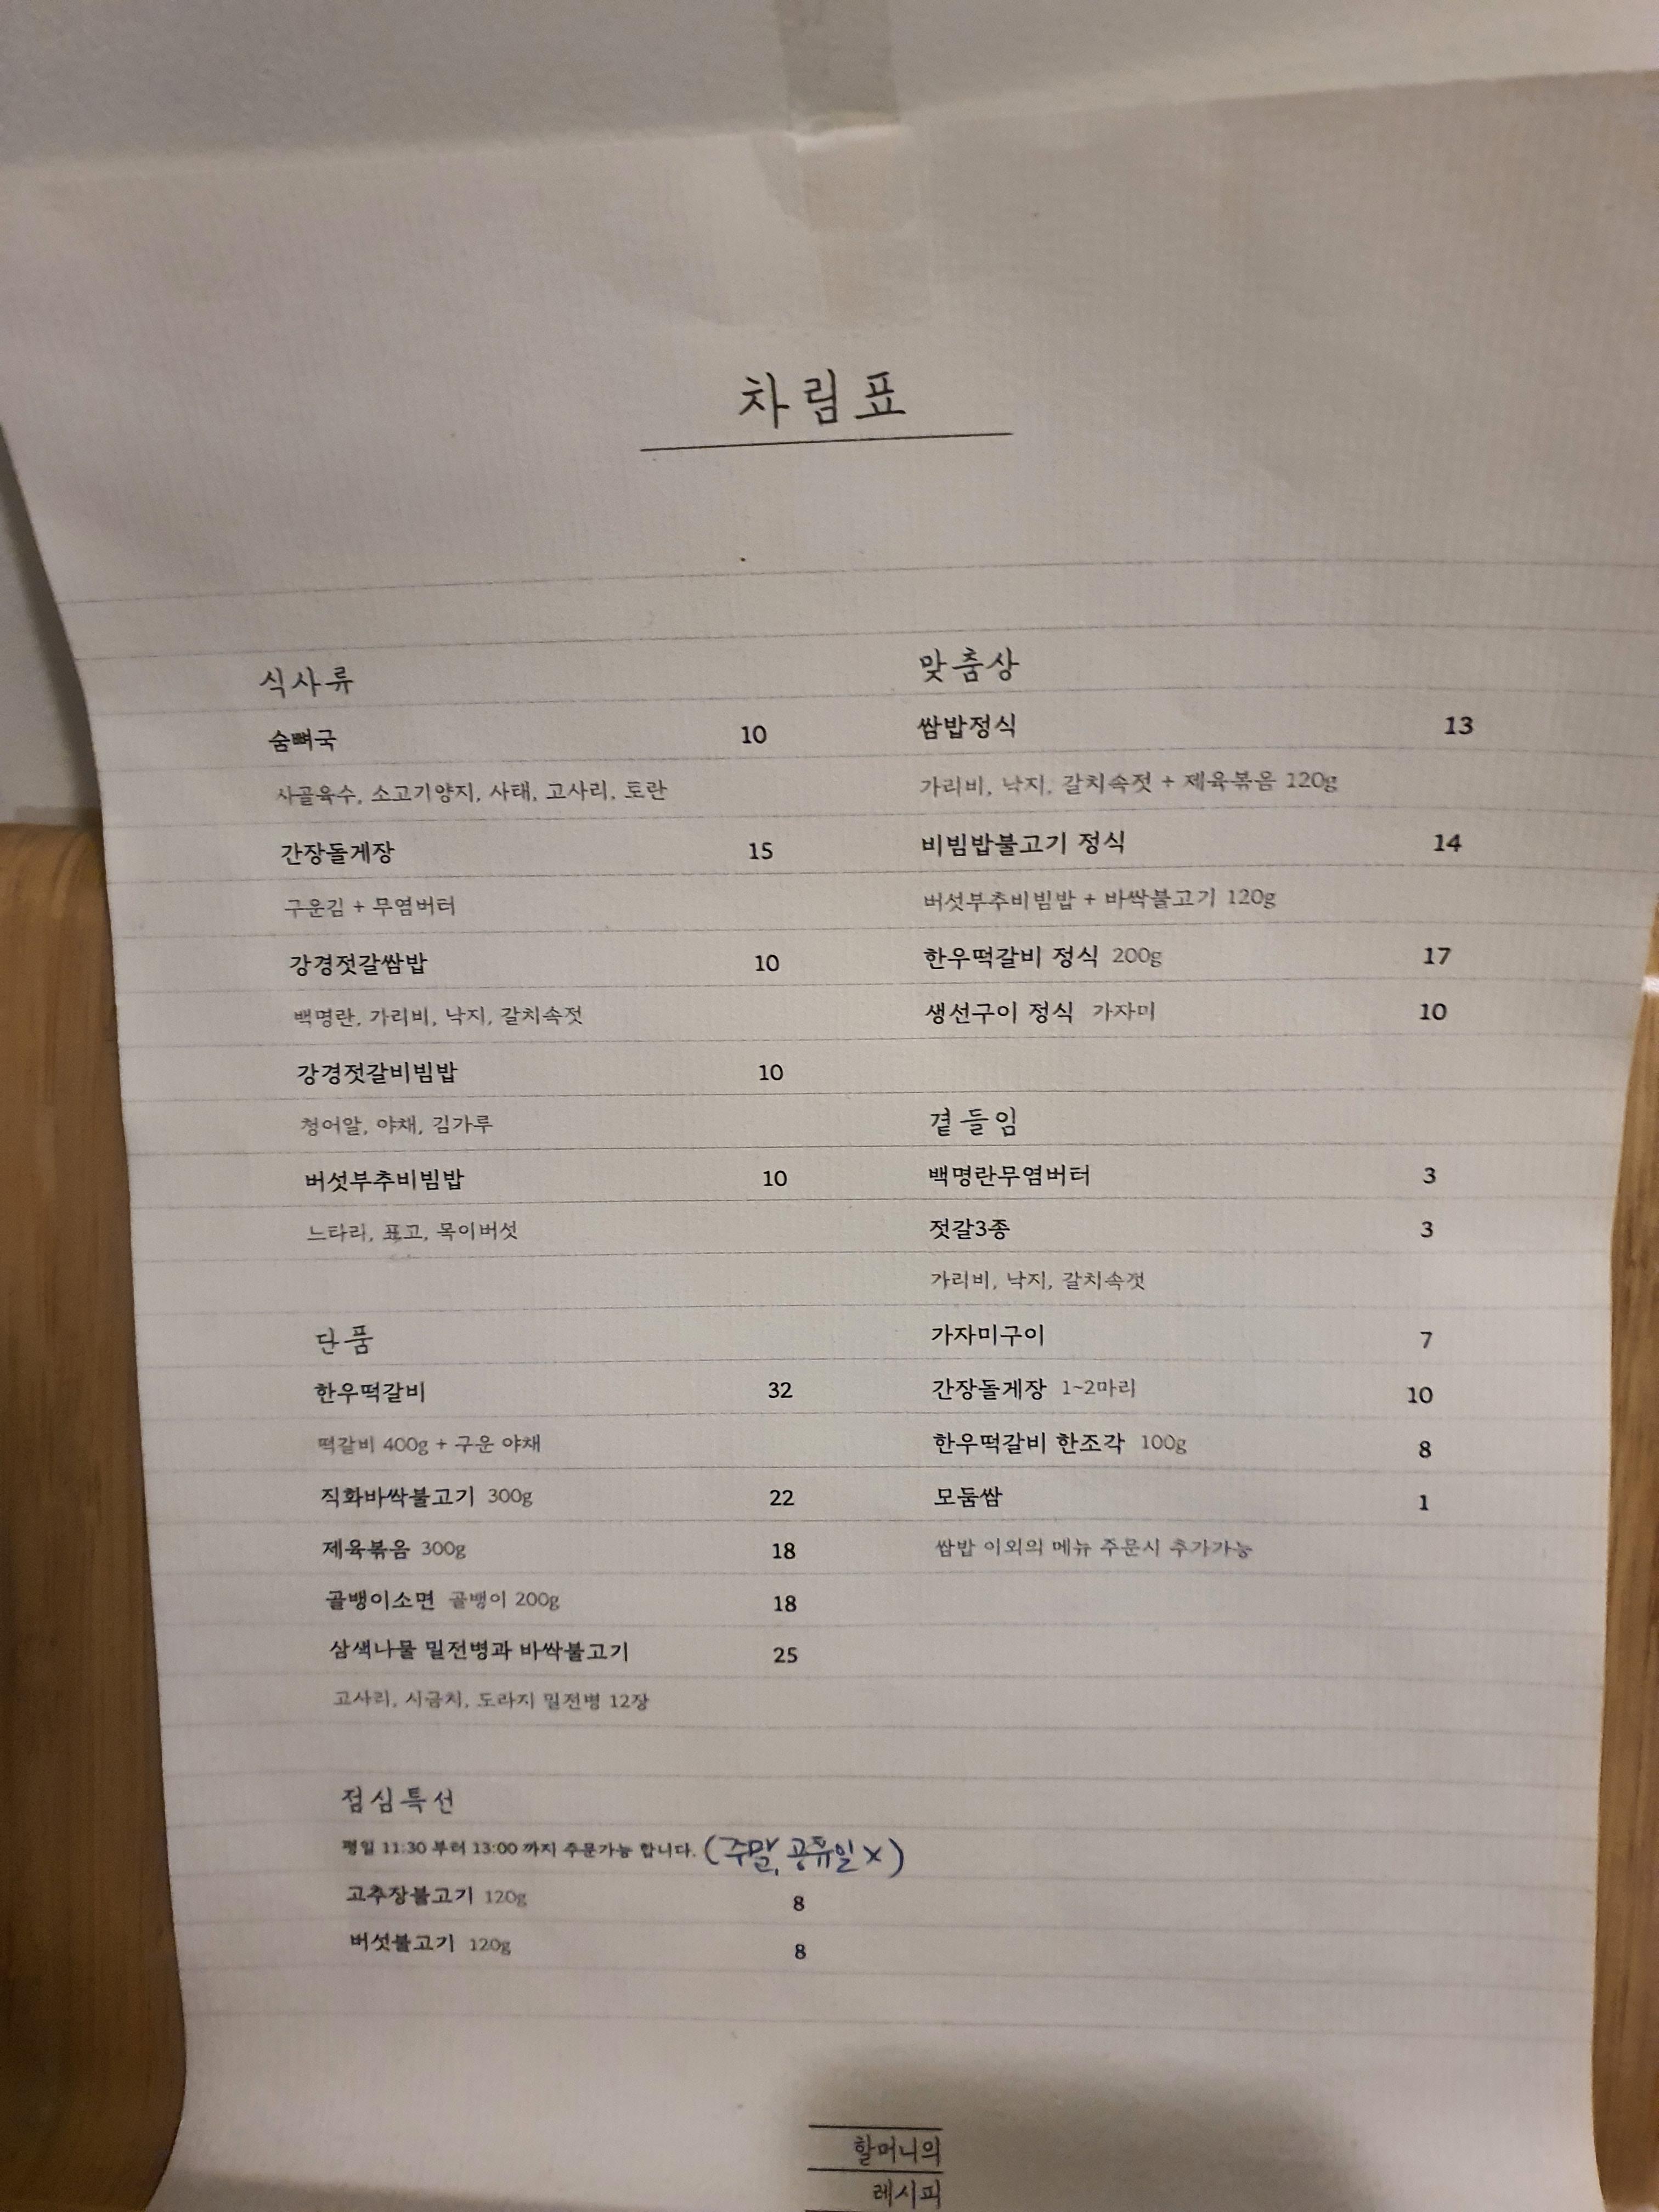 차림표
식사류
숨뼈국 10
사골육수, 소고기양지, 사태, 고사리, 토란
간장돌게장 15
구운김 + 무염버터
강경젓갈쌈밥 10
백명란, 가리비, 낙지, 갈치속젓
강경젓갈비빔밥 10
청어알, 야채, 김가루
버섯부추비빔밥 10
느타리, 표고, 목이버섯
단품
한우떡갈비 32
떡갈비 400g + 구운 야채
직화바싹불고기 300g 22
제육볶음 300g 18
골뱅이소면 골뱅이 200g 18
삼색나물 밀전병과 바싹불고기 25
고사리, 시금치, 도라지 밀전병 12장
점심특선
평일 11:30 부터 13:00 까지 주문가능 합니다. (주말, 공휴일 X)
고추장불고기 120g 8
버섯불고기 120g 8
맞춤상
쌈밥정식 13
가리비, 낙지, 갈치속젓 + 제육볶음 120g
비빔밥불고기 정식 14
버섯부추비빔밥 + 바싹불고기 120g
한우떡갈비 정식 200g 17
생선구이 정식 가자미 10
곁들임
백명란무염버터 3
젓갈3종 3
가리비, 낙지, 갈치속젓
가자미구이 7
간장돌게장 1~2마리 10
한우떡갈비 한조각 100g 8
모둠쌈 1
쌈밥 이외의 메뉴 주문시 추가가능
할머니의
레시피